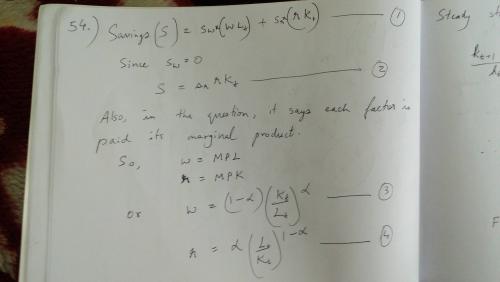 54.) Savings (S) = s_w*(wL_t) + s_r*(rK_t) —— ①
Since s_w = 0
S = s_r rK_t —— ②
Also, in the question, it says each factor is
paid its marginal product.
So, w = MPL
r = MPK
or w = (1-α) (K_t/L_t)^α —— ③
r = α (L_t/K_t)^(1-α) —— ④
Steady
k_t+1